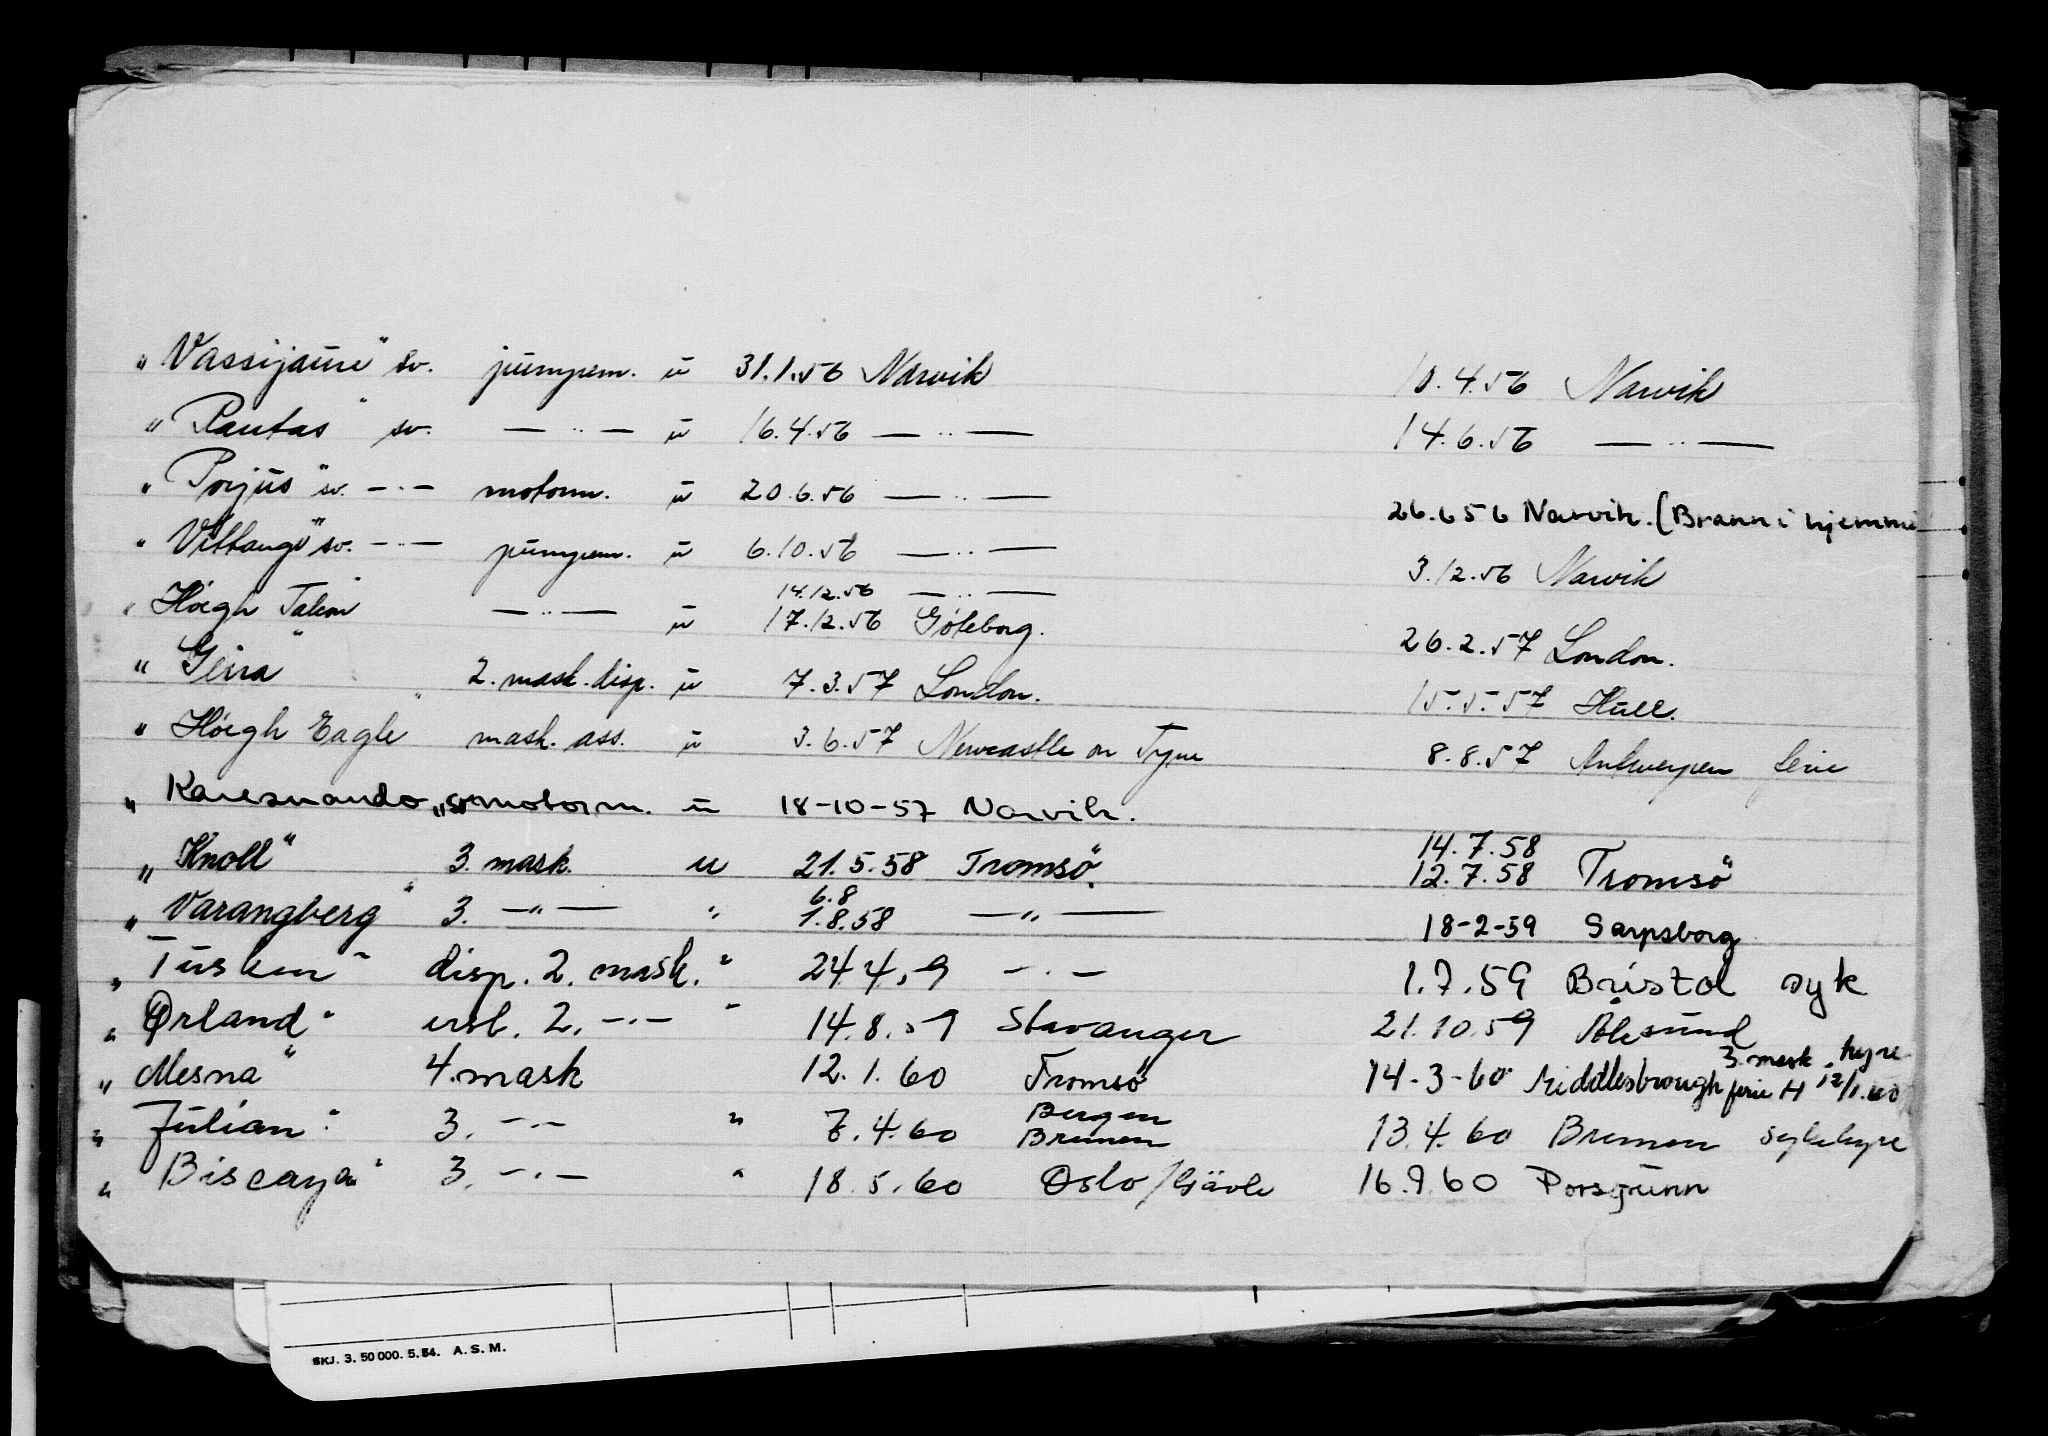 „ Vassijaure" sv. pumpem. u 31.1.56 Narvik 10.4.56 Narvik
„ Rautas" sv. — " — u 16.4.56 — " — 14.6.56 — " —
„ Porjus" sv. — " — motorm. u 20.6.56 — " — 26.6 56 Narvik. (Brann i hjemme
„ Vittangi" sv. — " — pumpem. u 6.10.56 — " — 3.12.56 Narvik
14.12.56 — " —
„ Höegh Talon — " — u 17.12.56 Göteborg. 26.2.57 London.
„ Geira" 2. mask. disp. u 7.3.57 London. 15.5.57 Hull.
„ Höegh Eagle" mask. ass. u 3.6.57 Newcastle on Tyne 8.8.57 Antwerpen ferie
„ Karesuando„ sv motorm. u 18-10-57 Narvik.
14.7.58
„ Knoll" 3. mask. u 21.5.58 Tromsö. 12.7.58 Tromsö
6.8
„ Varangberg" 3. — " — " 1.8.58 — " — 18-2-59 Sarpsborg
„ Tusken" disp. 2. mask. " 24.4.59 — " — 1.7.59 Bristol syk
„ Ørland" 2. — " — " 14.8.59 Stavanger 21.10.59 Ålesund
3. mask. hyre
„ Mesna" 4. mask 12.1.60 Tromsö 14-3-60 Middlesbrough ferie 12/1.60
„ Julian" 3. — " — " 7.4.60 Bergen Bremen 13.4.60 Bremen sykehyre
„ Biscaya" 3. — " — " 18.5.60 Oslo/Gävle 16.9.60 Porsgrunn
SKJ. 3. 50 000. 5. 54. A. S. M.